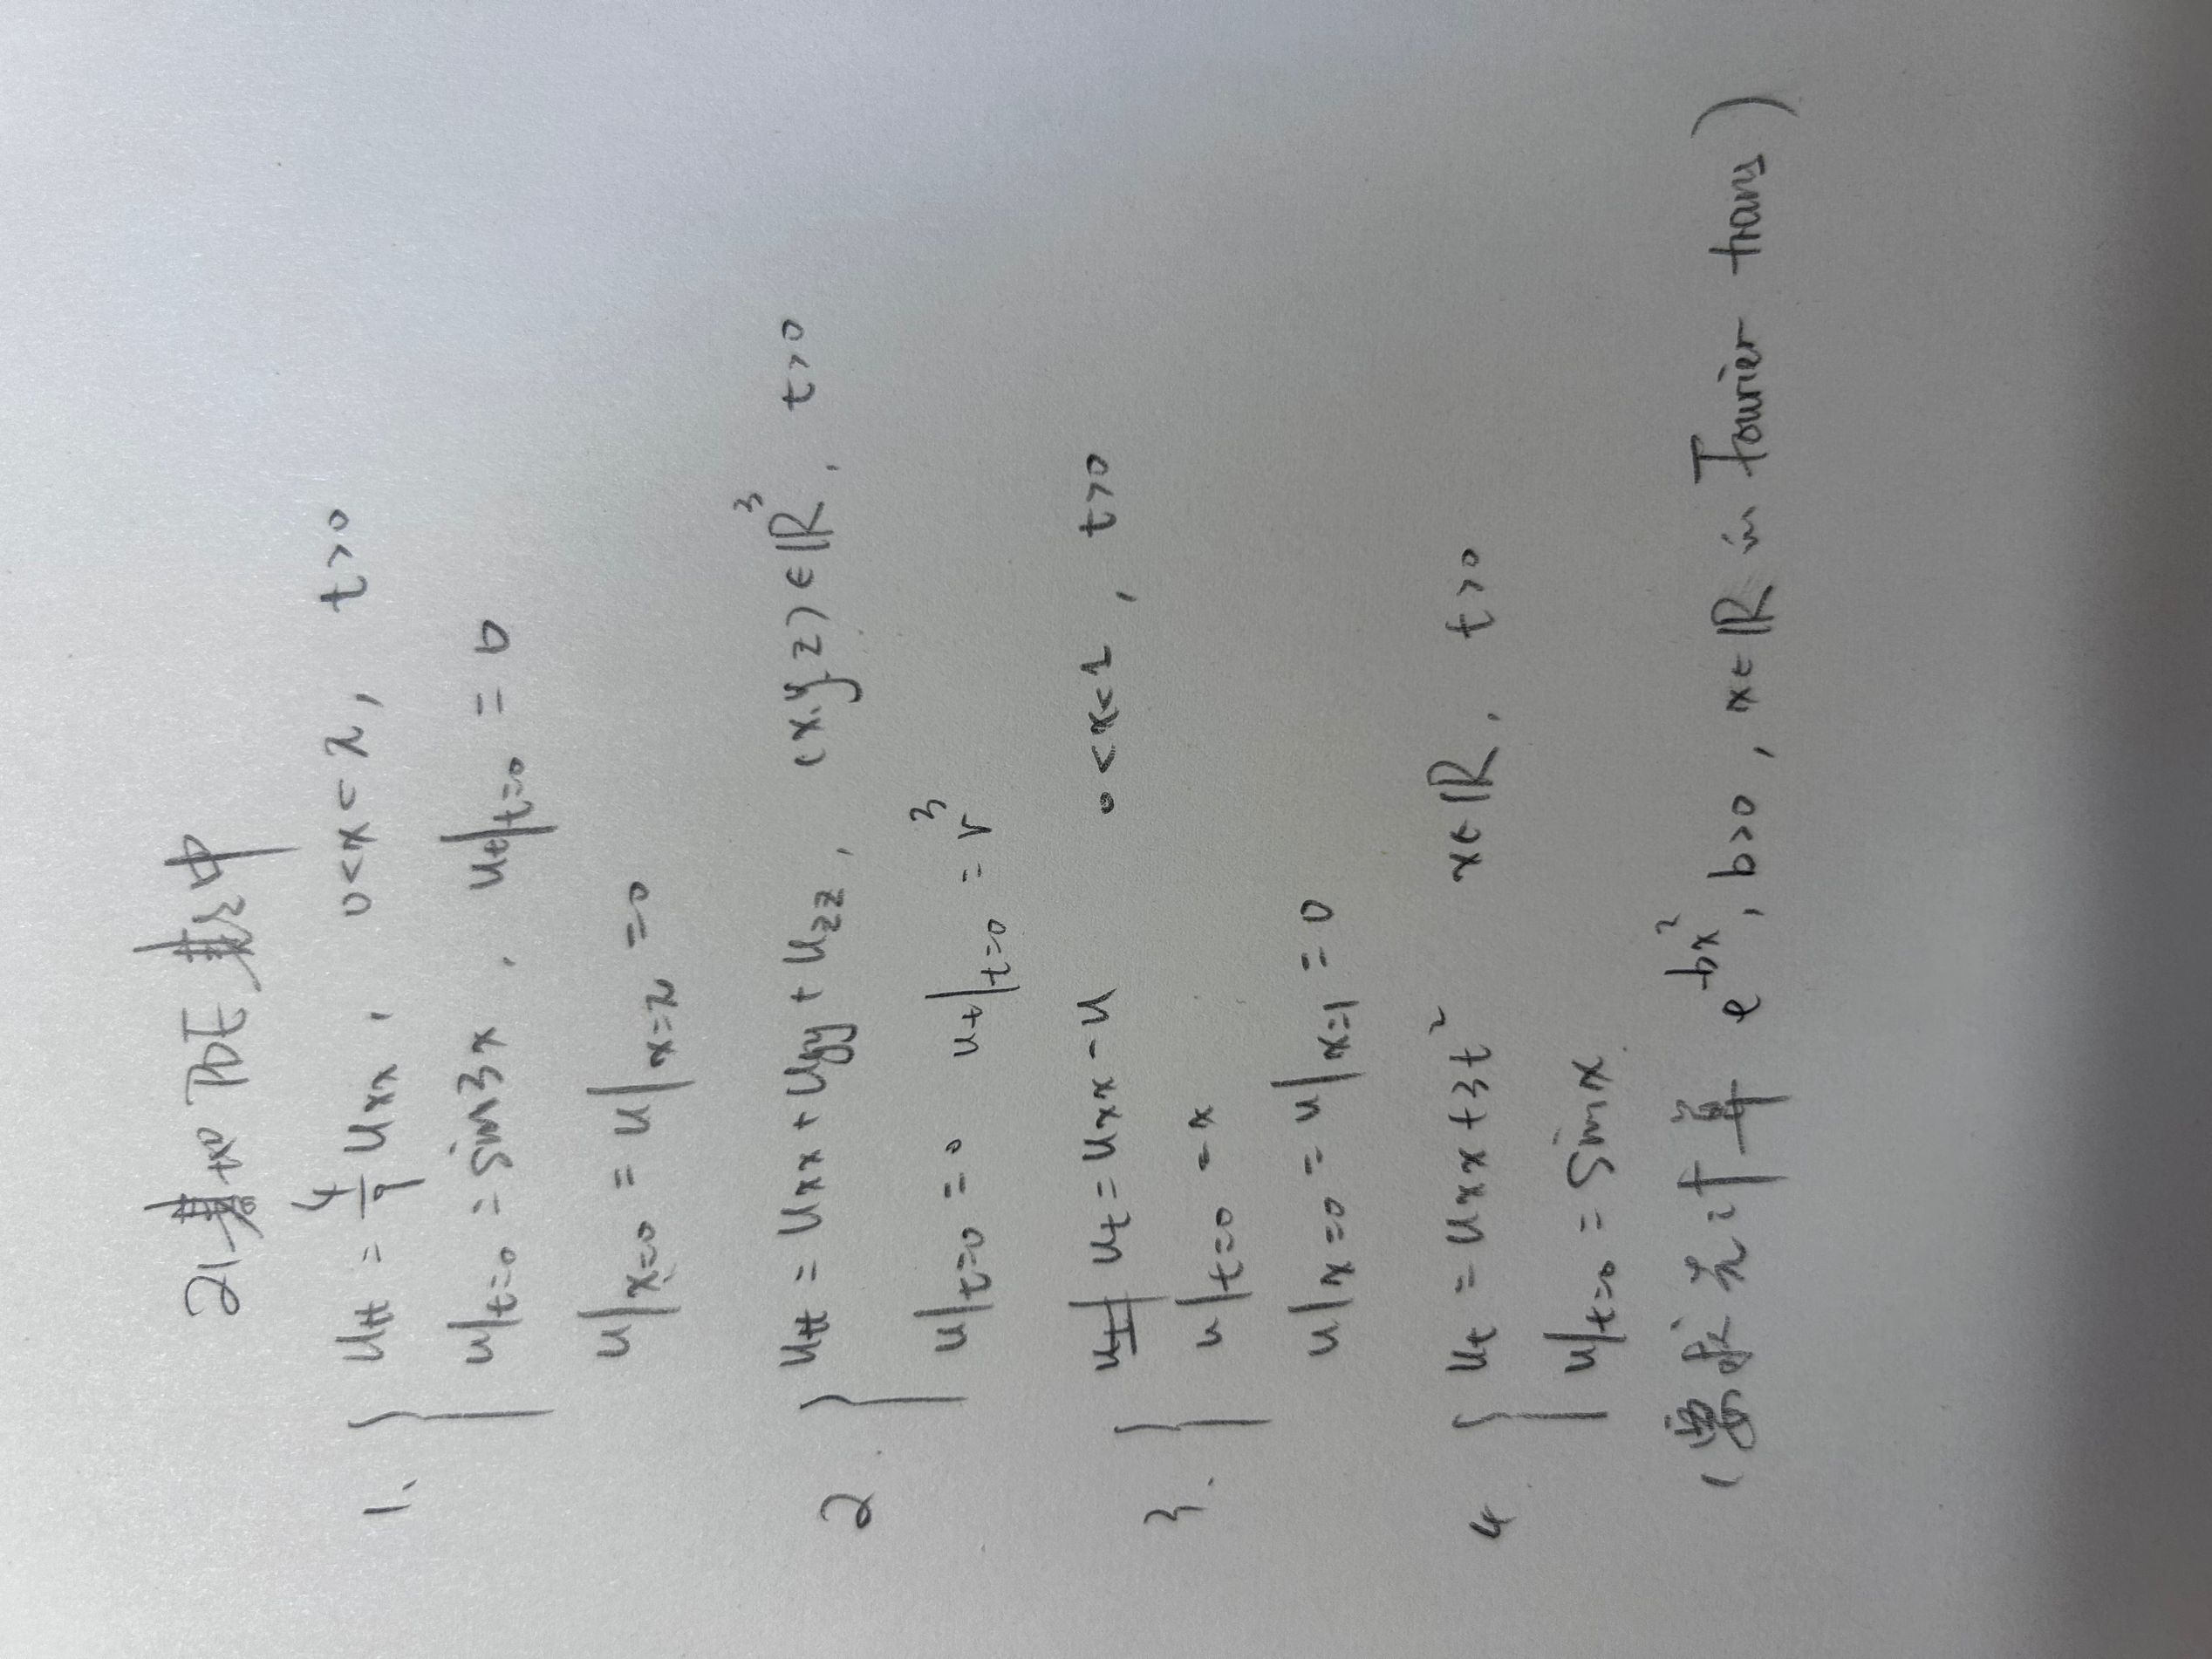 21基地 PDE 期中
1. { u_tt = 4/9 u_xx, 0<x<π, t>0
u|_{t=0} = sin3x, u_t|_{t=0} = 0
u|_{x=0} = u|_{x=π} = 0
2. { u_tt = u_xx + u_yy + u_zz, (x,y,z) ∈ ℝ^3, t>0
u|_{t=0} = 0 u_t|_{t=0} = r^3
3. { u_t = u_xx - u 0<x<1, t>0
u|_{t=0} = x
u|_{x=0} = u|_{x=1} = 0
4 { u_t = u_xx + 3t^2 x∈ℝ, t>0
u|_{t=0} = sinx
(要求先计算 e^{-bx^2}, b>0, x∈ℝ in Fourier trans)